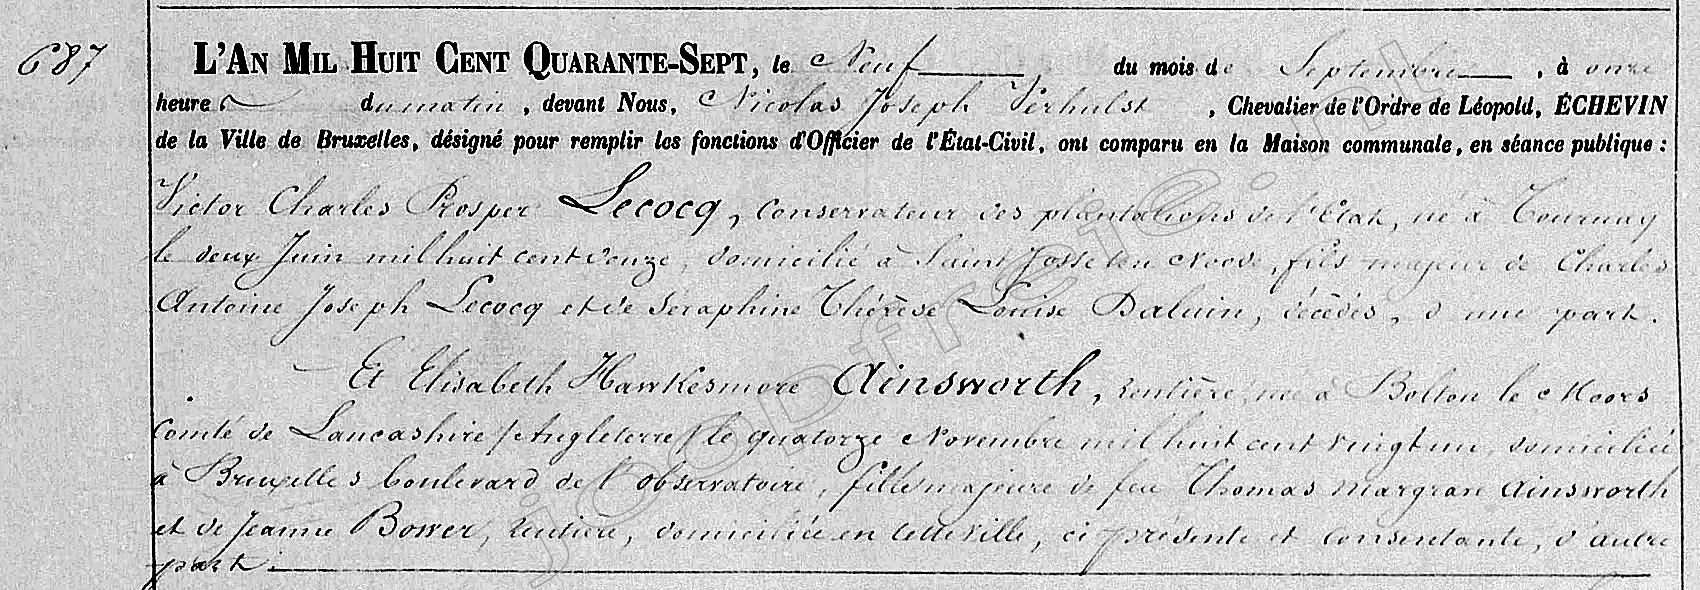 687
L'AN MIL HUIT CENT QUARANTE-SEPT, le Neuf du mois de Septembre, à onze
heures du matin, devant Nous, Nicolas Joseph Verhulst, Chevalier de l'Ordre de Léopold, ÉCHEVIN
de la Ville de Bruxelles, désigné pour remplir les fonctions d'Officier de l'État-Civil, ont comparu en la Maison communale, en séance publique :
Victor Charles Prosper Lecocq, Conservateur des plantations de l'Etat, né à Tournay
le deux Juin mil huit cent douze, domicilié à Saint Josse ten Noode, fils majeur de Charles
Antoine Joseph Lecocq et de Séraphine Thérèse Louise Daluin, décédés, d'une part.
Et Elisabeth Hawkesmore Ainsworth, rentière, née à Bolton le Moors
Comté de Lancashire /Angleterre/ le quatorze Novembre mil huit cent vingt un, domiciliée
à Bruxelles boulevard de l'observatoire, fille majeure de feu Thomas Margrave Ainsworth
et de Jeanne Bower, rentière, domiciliée en cette ville, ci présente et consentante, d'autre
part.